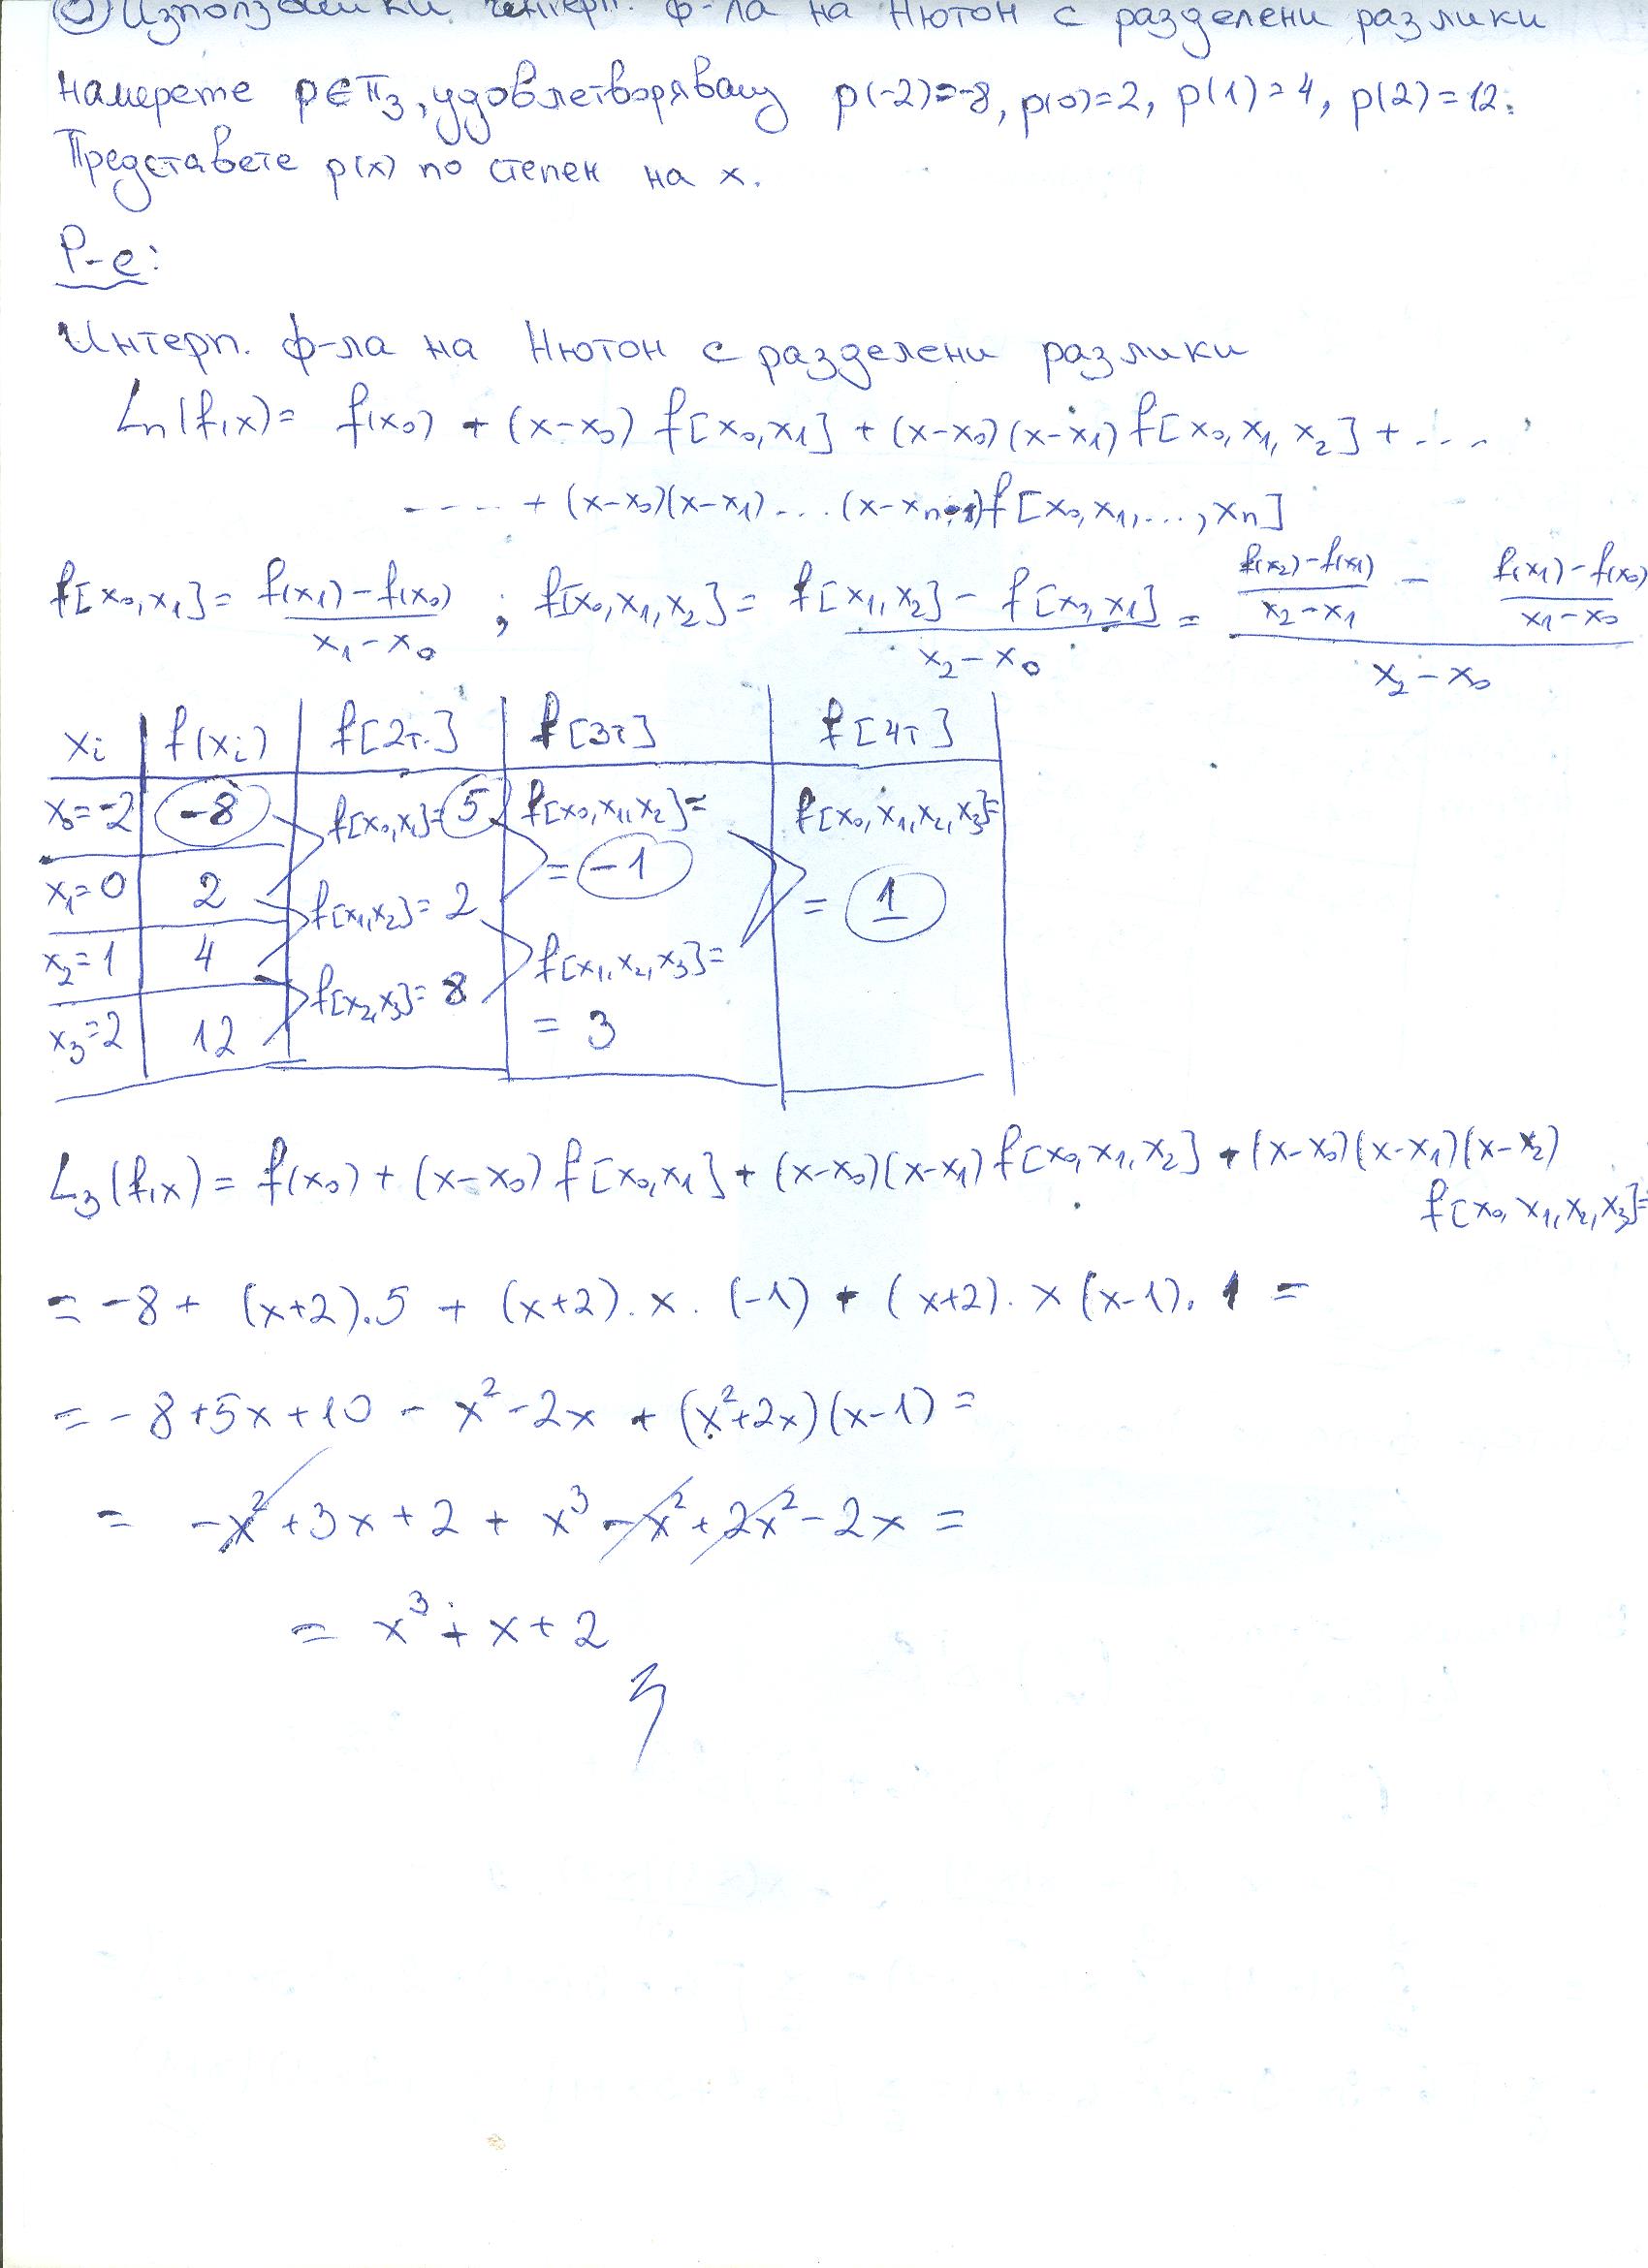 Използвайки интерп. ф-ла на Нютон с разделени разлики
намерете p∈π₃, удовлетворяващ p(-2)=-8, p(0)=2, p(1)=4, p(2)=12.
Представете p(x) по степен на x.
Р-е:
Интерп. ф-ла на Нютон с разделени разлики
Lₙ(f,x)= f(x₀) + (x-x₀) f[x₀,x₁] + (x-x₀)(x-x₁) f[x₀,x₁,x₂] + ...
.... + (x-x₀)(x-x₁)...(x-xₙ₋₁)f[x₀,x₁,...,xₙ]
f[x₀,x₁]= (f(x₁)-f(x₀))/(x₁-x₀) ; f[x₀,x₁,x₂]= (f[x₁,x₂]-f[x₀,x₁])/(x₂-x₀) = ((f(x₂)-f(x₁))/(x₂-x₁) - (f(x₁)-f(x₀))/(x₁-x₀))/(x₂-x₀)
xᵢ f(xᵢ) f[2т.] f[3т] f[4т]
x₀=-2 -8 f[x₀,x₁]=5 f[x₀,x₁,x₂]= f[x₀,x₁,x₂,x₃]=
= -1
x₁=0 2 f[x₁,x₂]=2 = 1
x₂=1 4 f[x₁,x₂,x₃]=
f[x₂,x₃]=8
x₃=2 12 = 3
L₃(f,x)= f(x₀)+(x-x₀) f[x₀,x₁]+(x-x₀)(x-x₁) f[x₀,x₁,x₂] + (x-x₀)(x-x₁)(x-x₂)
f[x₀,x₁,x₂,x₃]=
= -8 + (x+2).5 + (x+2).x.(-1) + (x+2).x(x-1).1 =
= -8+5x+10 - x²-2x + (x²+2x)(x-1)=
= -x²+3x+2 + x³-x²+2x²-2x =
= x³+x+2